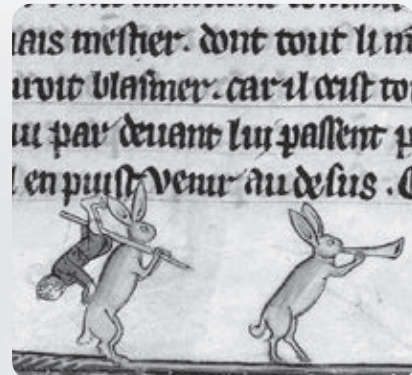 iais mestier. dont tout li m
uvoit blasmer. car il to
ui par deuant luy passent p
l en puist venir au desus . C